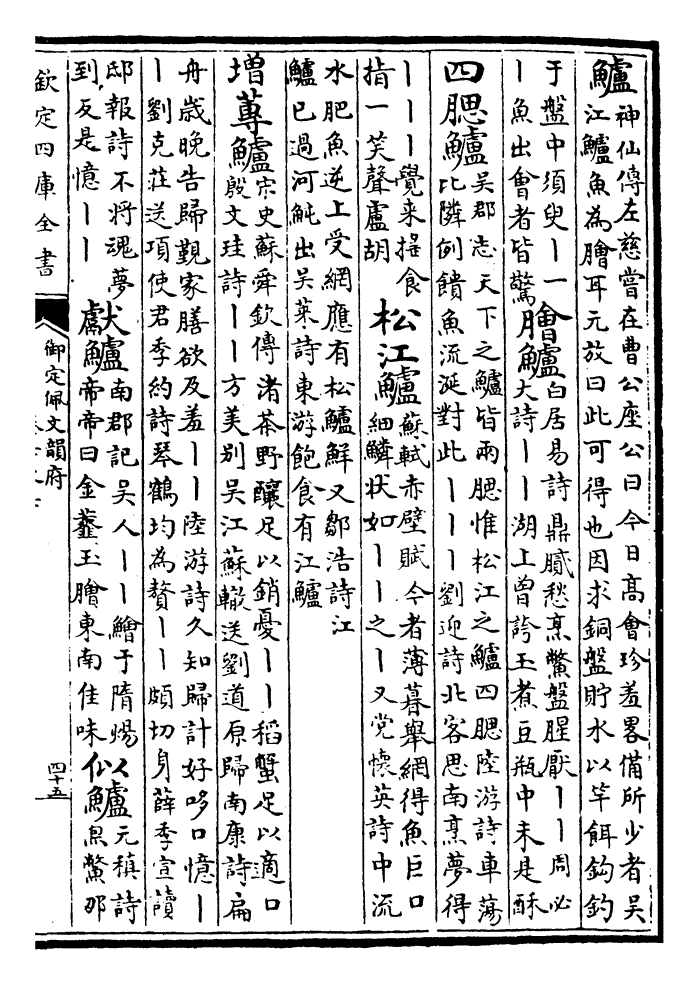 鱸神仙傳左慈嘗在曹公座公曰今日髙會珍羞畧備所少者吳
江鱸魚為膾耳元放曰此可得也因求銅盤貯水以竿餌鈎釣
于盤中須臾丨一
丨魚出會者皆驚
膾鱸白居易詩鼎膩愁烹鱉盤腥厭丨丨周必
大詩丨丨湖上曾誇玉煮豆瓶中未是酥
四腮鱸吳郡志天下之鱸皆兩腮惟松江之鱸四腮陸游詩車蕩
比隣例饋魚流涎對此丨丨丨劉迎詩北客思南烹夢得
丨丨丨覺来捉食
指一笑聲盧胡
松江鱸蘇軾赤壁賦今者薄暮舉網得魚巨口
細鱗状如丨丨之丨又党懷英詩中流
水肥魚逆上受網應有松鱸鮮又鄒浩詩江
鱸已過河魨出吳萊詩東游飽食有江鱸
増蓴鱸宋史蘇舜欽傳渚茶野釀足以銷憂丨丨稻蟹足以適口
殷文珪詩丨丨方美别吳江蘇轍送劉道原歸南康詩扁
舟歳晚告歸覲家膳欲及羞丨丨陸游詩久知歸計好哆口憶丨
丨劉克莊送項使君季約詩琴鶴均為贅丨丨頗切身薛季宣讀
邸報詩不將魂夢
到反是憶丨丨
獻鱸南郡記吳人丨丨鱠于隋煬
帝帝曰金虀玉膾東南佳味
似鱸元稹詩
炰鱉那
欽定四庫全書
御定佩文韻府
四十五